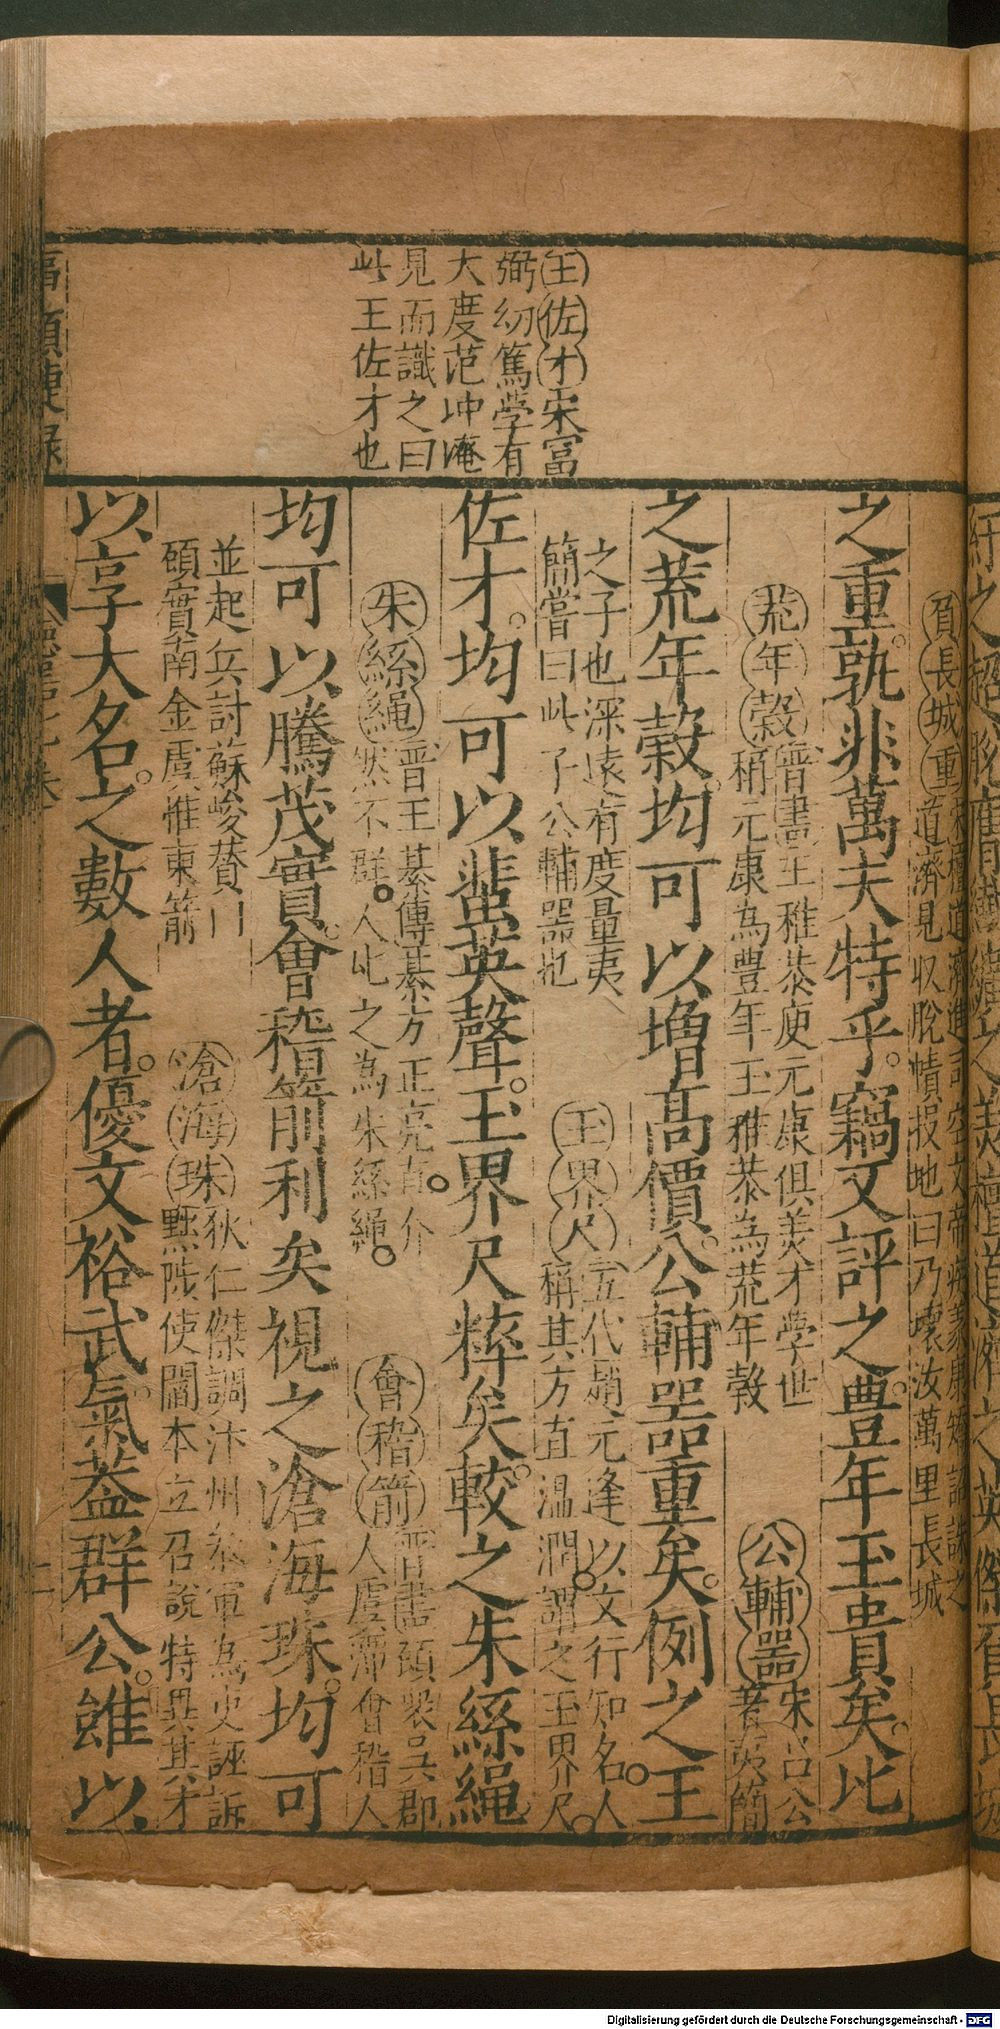 王佐才宋富
弼幼篤學有
大度范仲淹
見而識之曰
此王佐才也
負長城重宋檀道濟進司空文帝疾篤
道濟見収脫幘投地曰乃壞汝萬里長城
之重孰非萬夫特乎竊文評之豊年玉貴矣比
荒年穀晋書王稚恭庾元康俱美才學世
稱元康為豊年玉稚恭為荒年穀
公輔器宋呂公
著夷簡
之荒年穀均可以增高價公輔器重矣例之王
之子也深遠有度量夷
簡嘗曰此子公輔器也
玉界尺五代趙元逢以文行知名人
稱其方直温潤謂之玉界尺
佐才均可以蜚英聲玉界尺粹矣較之朱絲繩
朱絲繩晋王綦傳綦方正亮直介
然不群人比之為朱絲繩
會稽箭晋書頋裴吳郡
人虞潭會稽人
均可以騰茂實會稽箭利矣視之滄海珠均可
並起兵討蘇峻賛曰
頋實南金虞惟東箭
滄海珠狄仁傑調汴州参軍為吏誣訴
黜陟使閻本立召說特異其才
以享大名之數人者優文裕武氣葢群公雖以
Digitalisierung gefördert durch die Deutsche Forschungsgemeinschaft - DFG